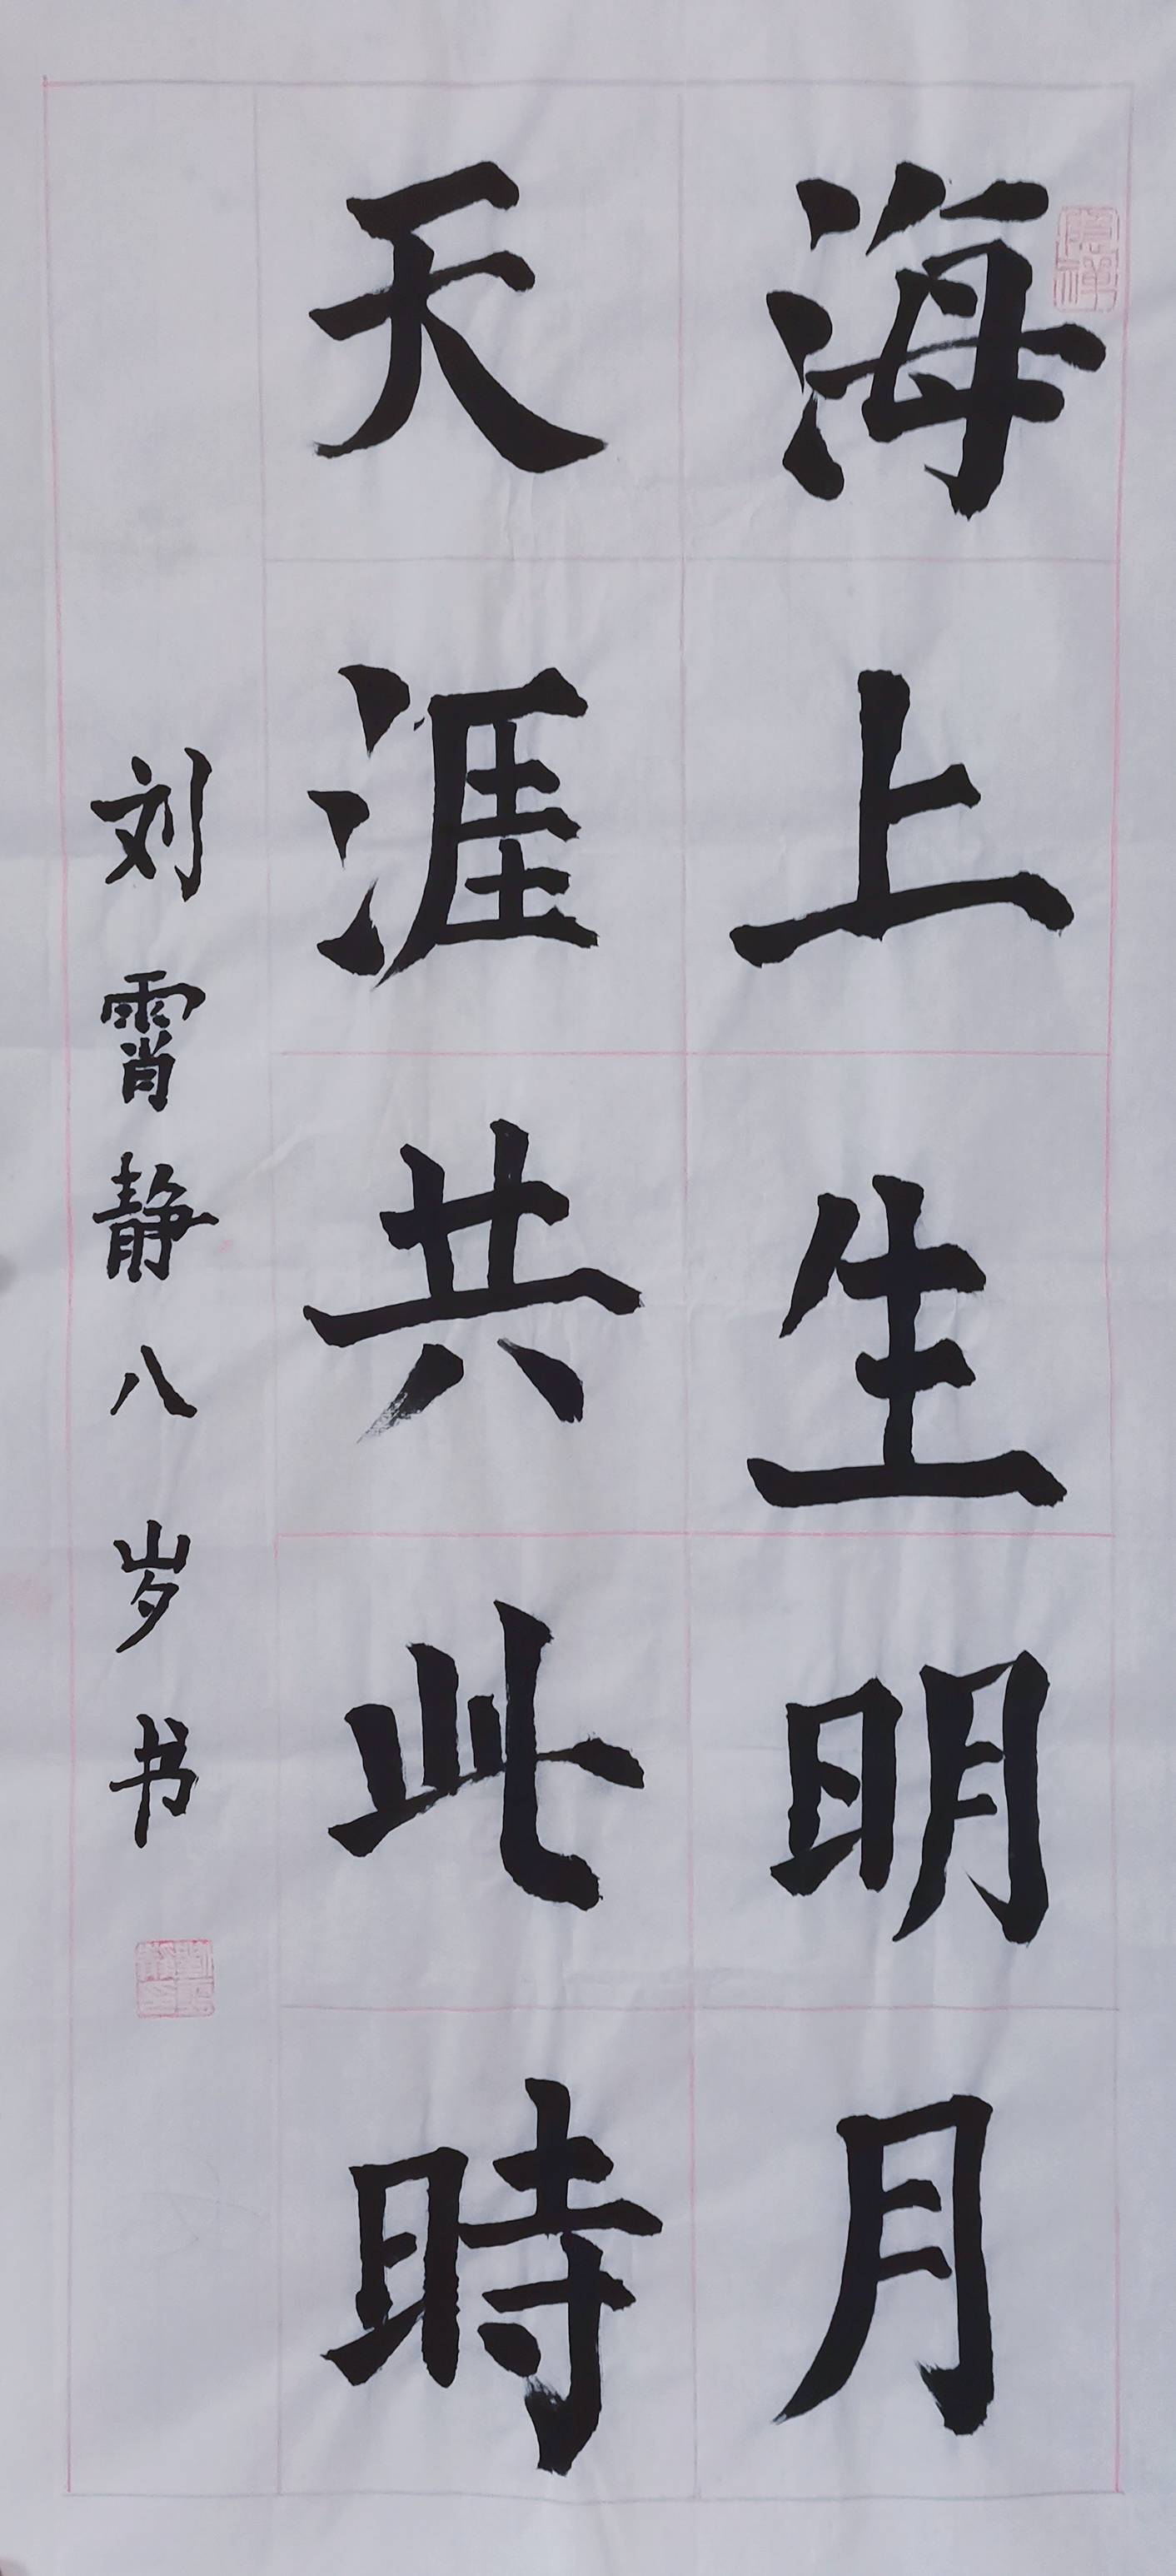 海上生明月
天涯共此時
刘霄静八岁书